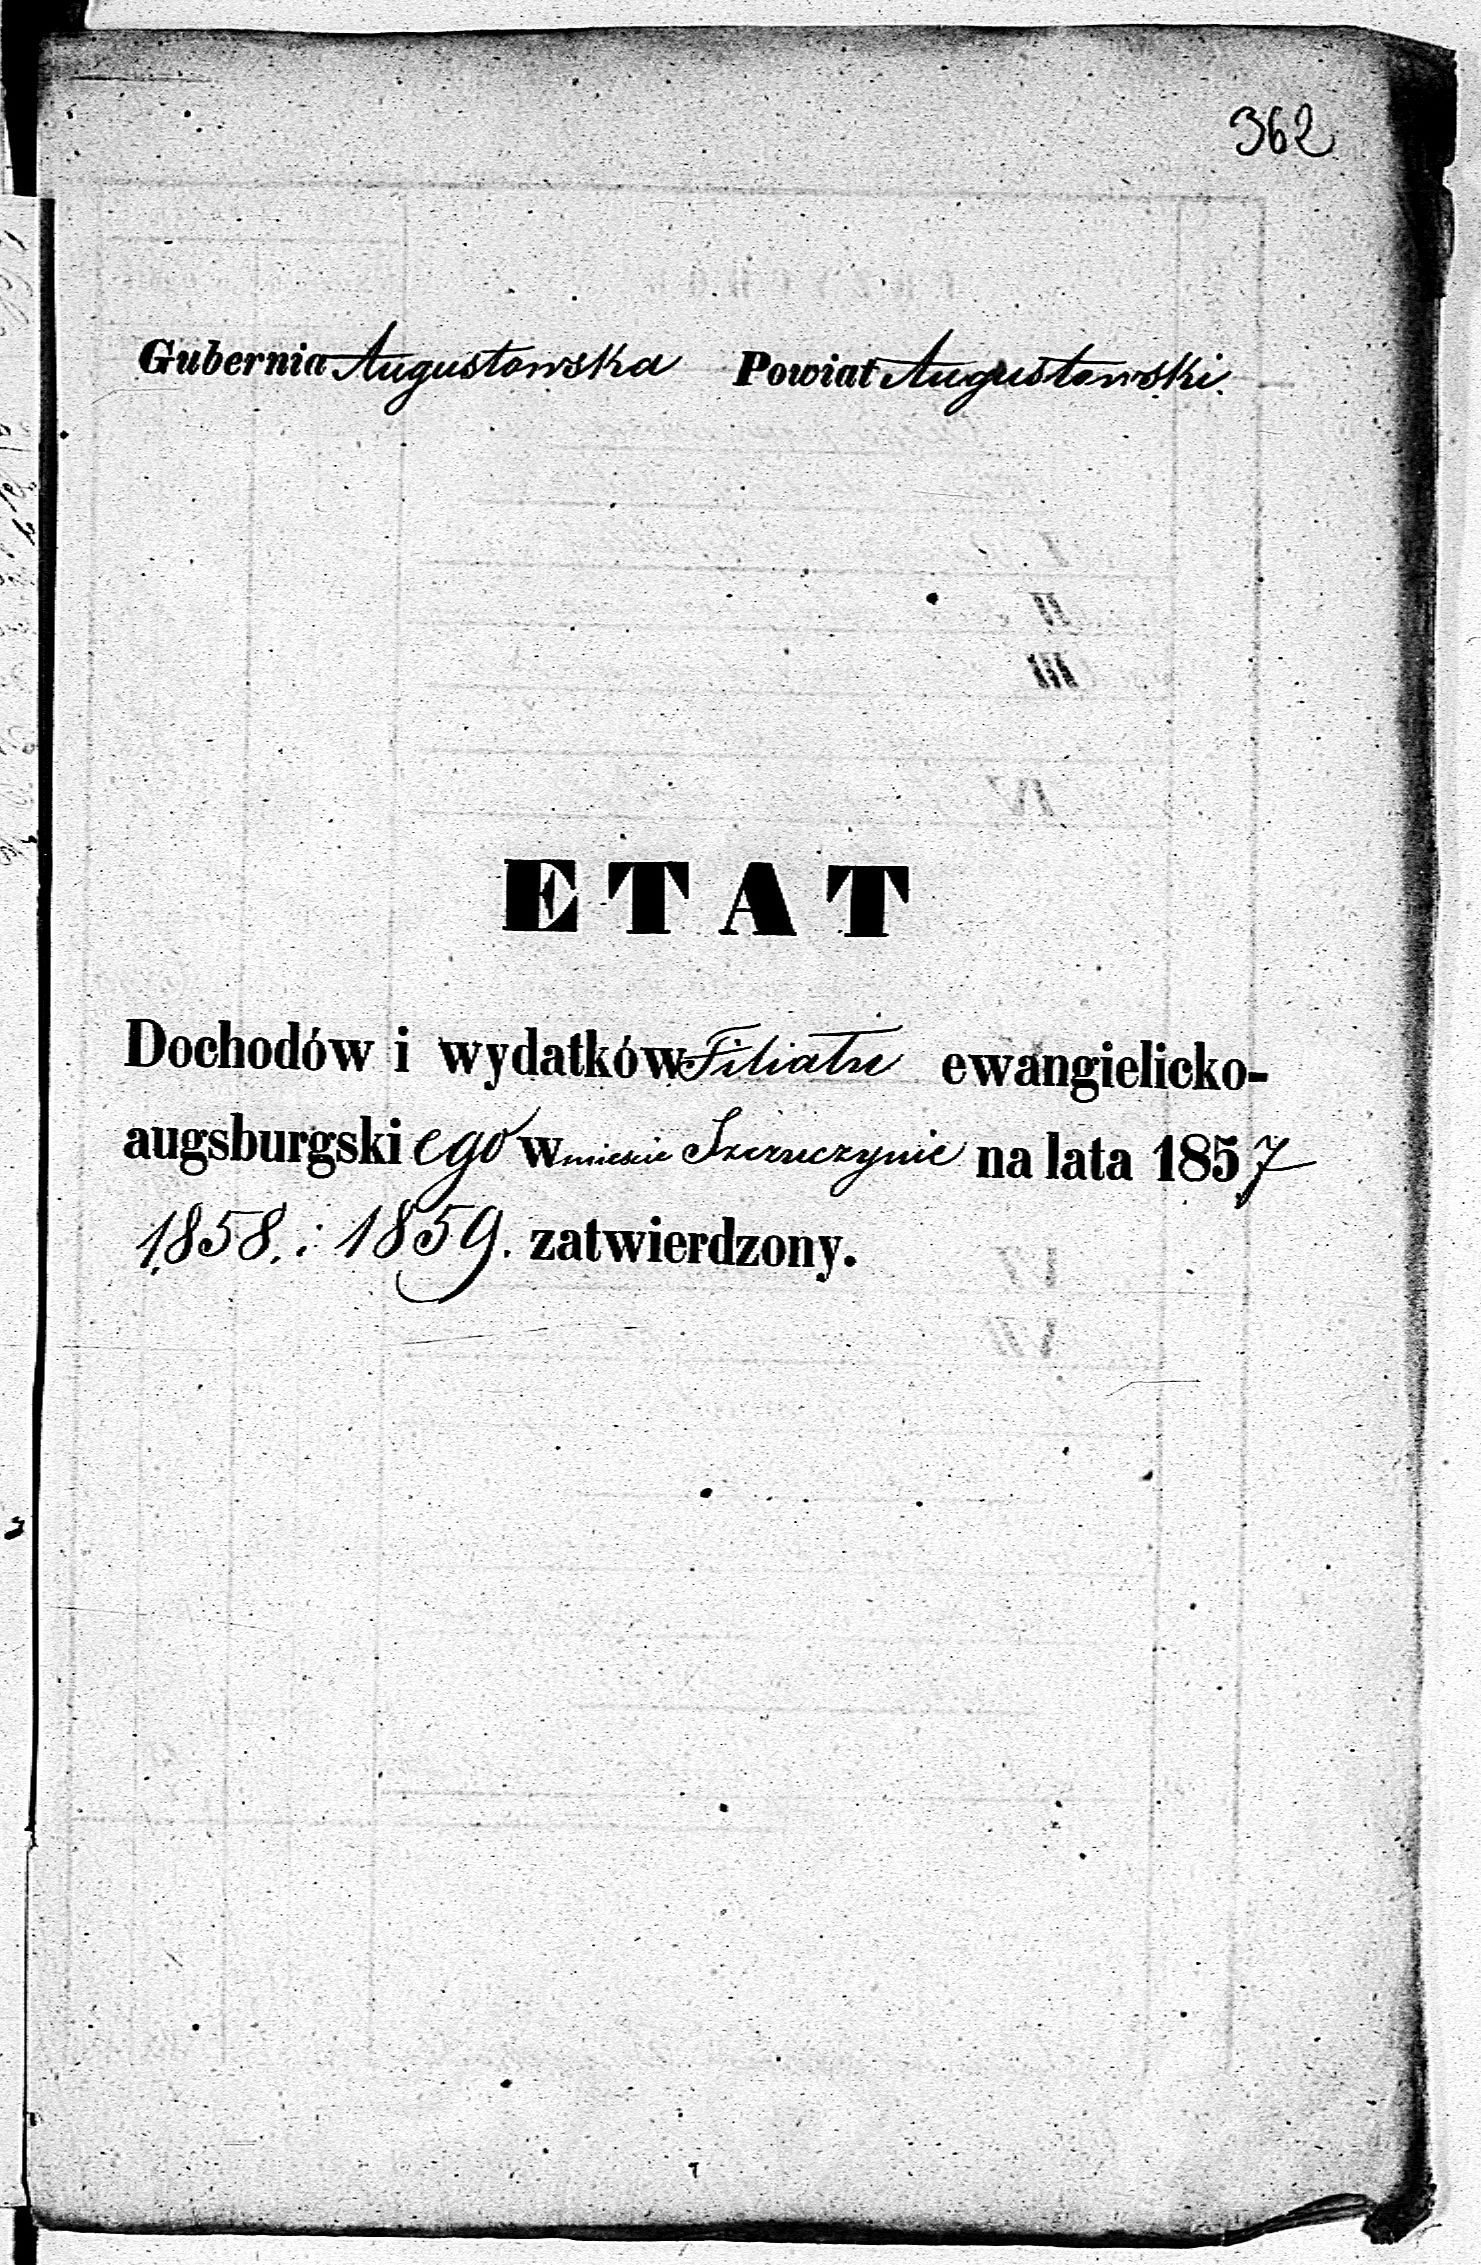 362
Gubernia Augustowska Powiat Augustowski.
ETAT
Dochodów i wydatków Filiału ewangielicko-
augsburgskiego w mieście Szczuczynie na lata 1857
1858. i 1859. zatwierdzony.